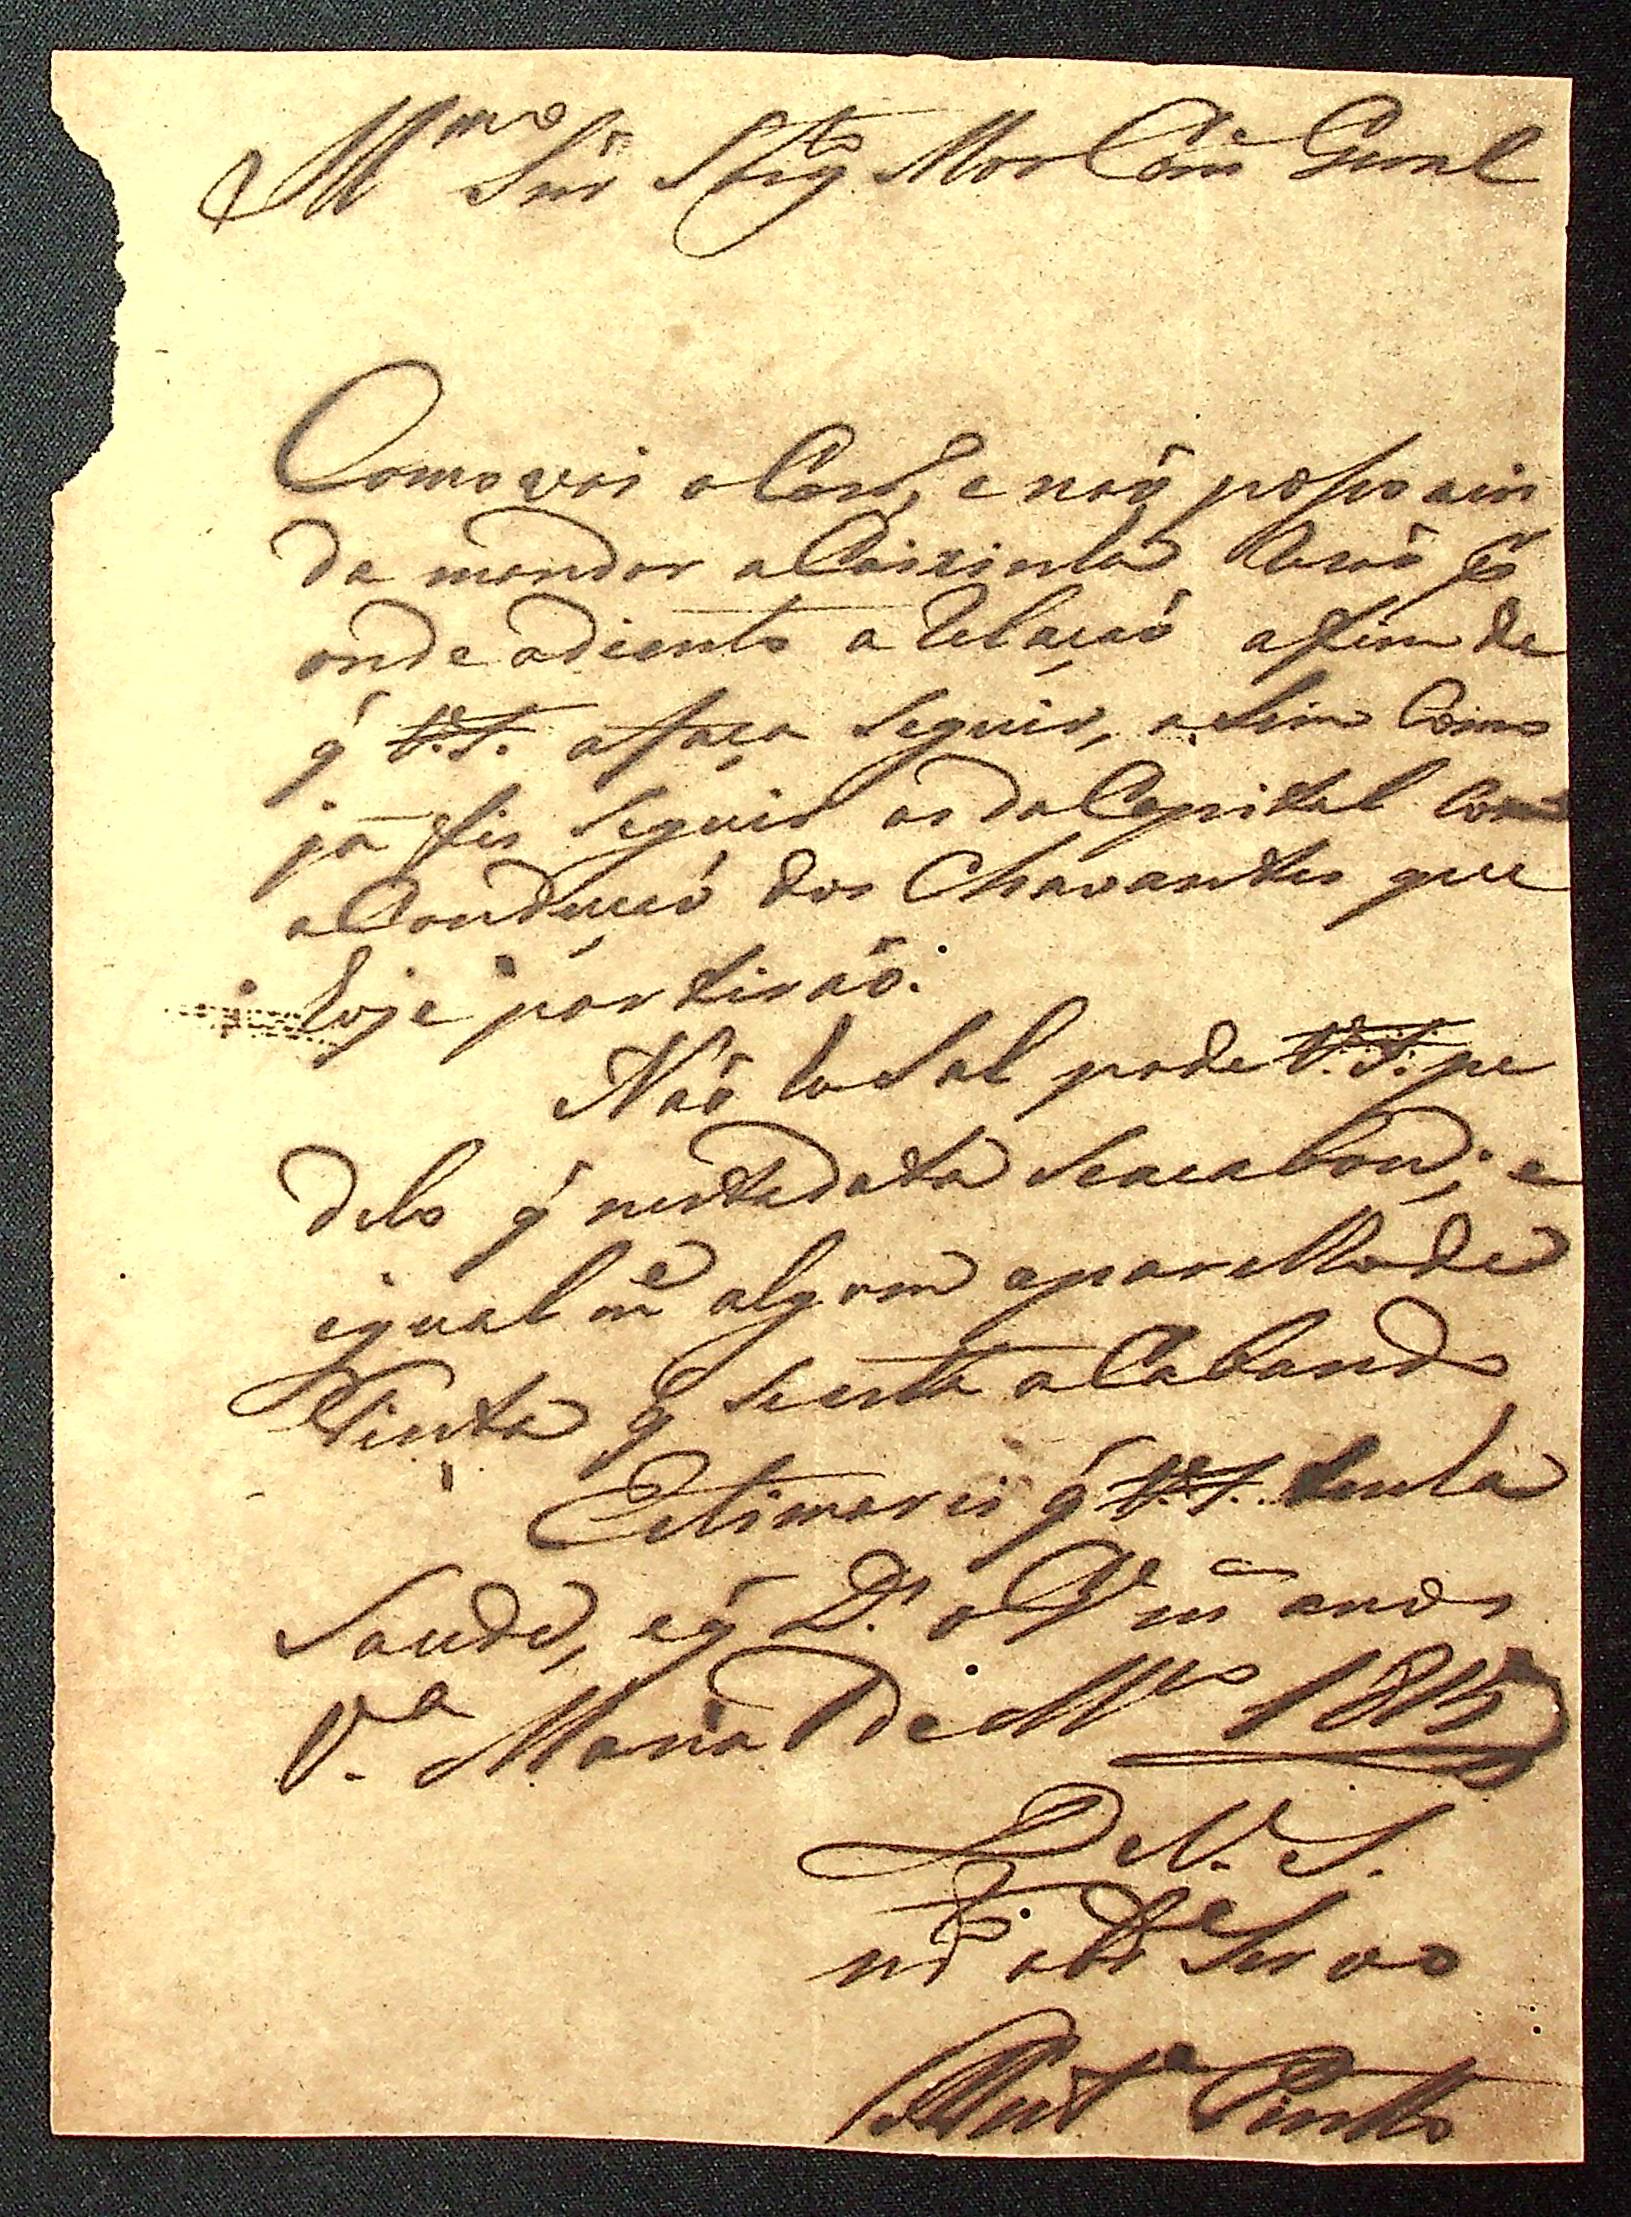 Illmo Snr Sarg Mor Com Geral
Como vai o Cor, e não posso ain
da mandar a Caixinha
onde adiento a relação afim de
q V.S. a faça seguir, asim Como
já fis seguir as da Capital Com
a Condução dos Chavantes que
hoje partirão.
Não ha Sal pode V.S. pe
dilo q nesta data se acabou; e
igualme algum aparelho de
Tinta q se esta aCabando
Estimarei q V.S. tenha
Saude, e q Ds. o Ge ms anos
Va. Maria de Mço 1815
De V. S.
mto obre Servo
Pinto